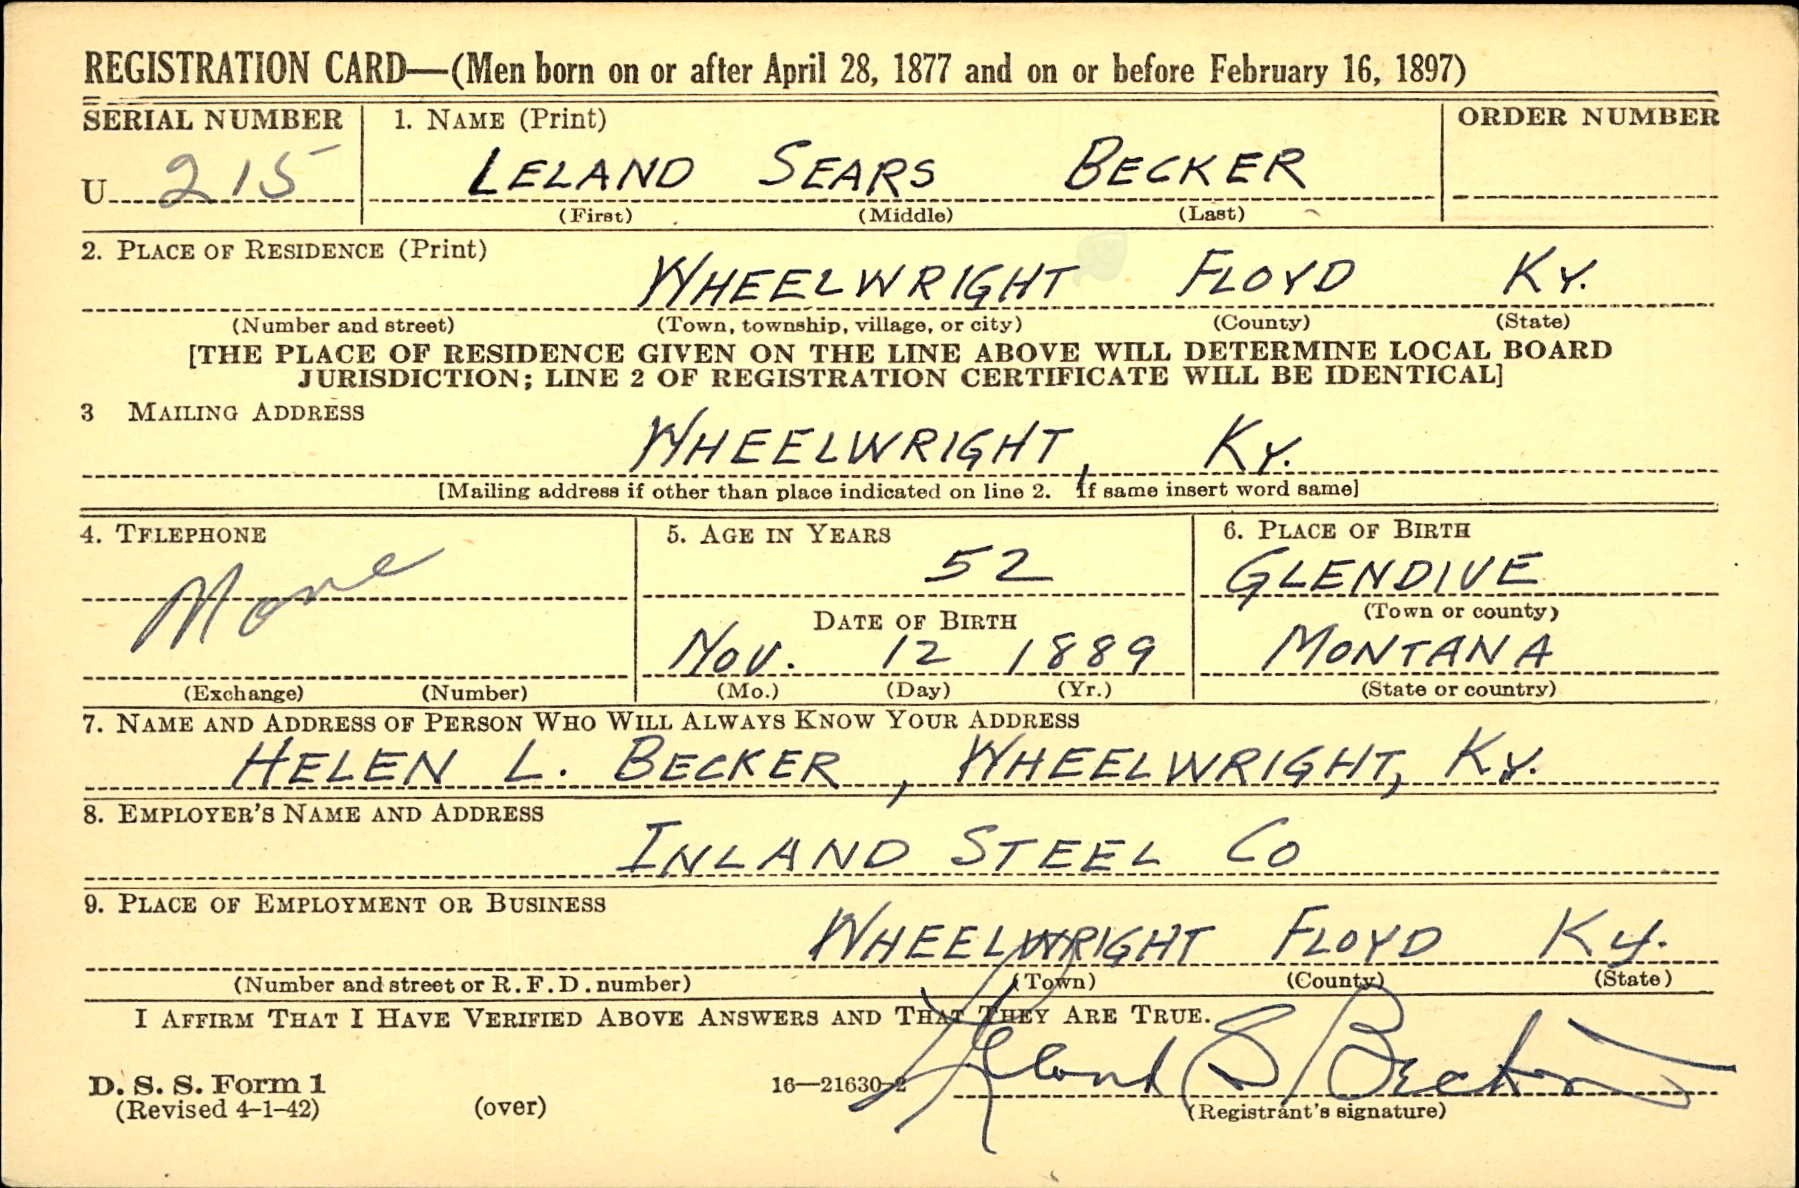 REGISTRATION CARD—(Men born on or after April 28, 1877 and on or before February 16, 1897)
SERIAL NUMBER 1. NAME (Print) ORDER NUMBER
U 215 LELAND SEARS BECKER
(First) (Middle) (Last)
2. PLACE OF RESIDENCE (Print)
WHEELWRIGHT FLOYD KY.
(Number and street) (Town, township, village, or city) (County) (State)
[THE PLACE OF RESIDENCE GIVEN ON THE LINE ABOVE WILL DETERMINE LOCAL BOARD
JURISDICTION; LINE 2 OF REGISTRATION CERTIFICATE WILL BE IDENTICAL]
3 MAILING ADDRESS
WHEELWRIGHT, KY.
[Mailing address if other than place indicated on line 2. If same insert word same]
4. TELEPHONE 5. AGE IN YEARS 6. PLACE OF BIRTH
None 52 GLENDIVE
DATE OF BIRTH (Town or county)
Nov. 12 1889 MONTANA
(Exchange) (Number) (Mo.) (Day) (Yr.) (State or country)
7. NAME AND ADDRESS OF PERSON WHO WILL ALWAYS KNOW YOUR ADDRESS
HELEN L. BECKER, WHEELWRIGHT, KY.
8. EMPLOYER'S NAME AND ADDRESS
INLAND STEEL CO
9. PLACE OF EMPLOYMENT OR BUSINESS
WHEELWRIGHT FLOYD Ky.
(Number and street or R. F. D. number) (Town) (County) (State)
I AFFIRM THAT I HAVE VERIFIED ABOVE ANSWERS AND THAT THEY ARE TRUE.
Leland S Becker
D. S. S. Form 1 16—21630-2
(Revised 4-1-42) (over) (Registrant's signature)